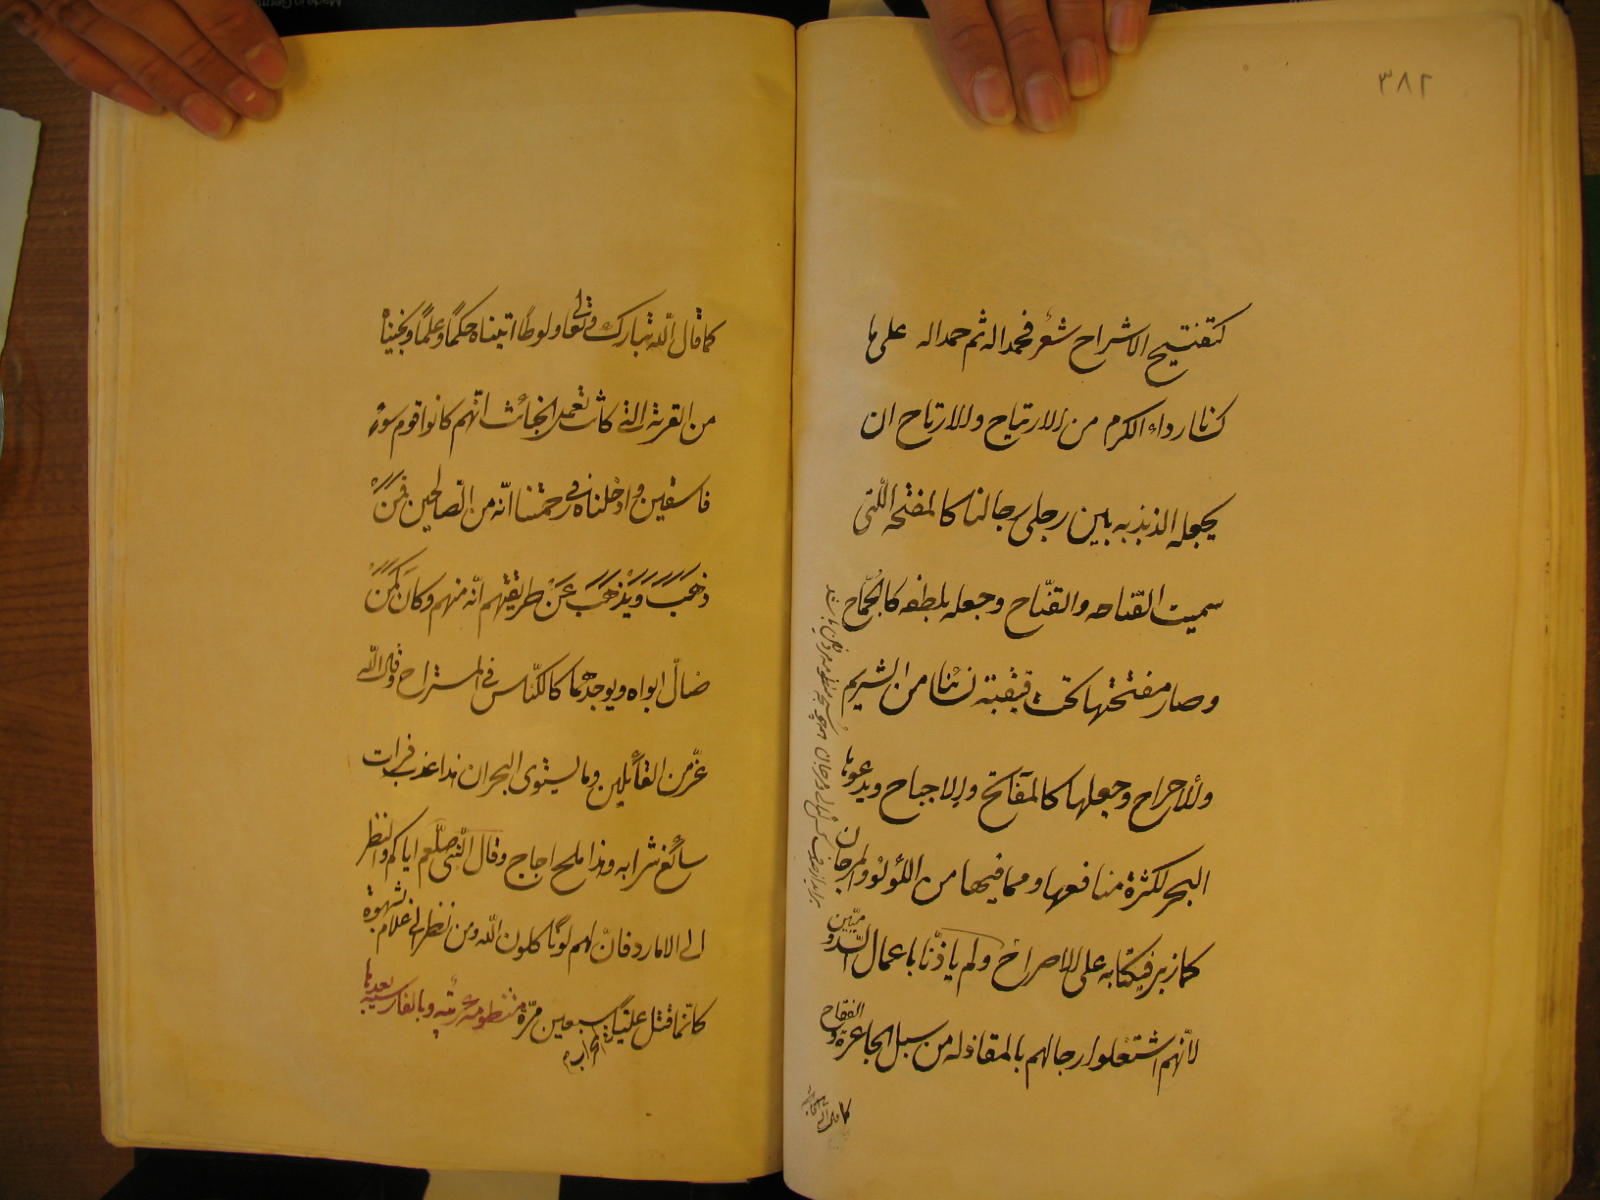 ٣٨٢
كتفتيح الاشراح شعر فحمدا له ثم حمدا له على ما
كسانا رداء الكرم من الارتياح والارتاح ان
يجعله الذبذبه بين رجلى رجالنا كالمفتحه اللتى
سميت القناحه والقنّاح وجعله بلطفه كالجمّاح
وصار مفتحتها تحت قبقبة نسائنا من الشريم
والاحراح وجعلها كالمفاتح والاجباح ويدعوها
البحر لكثرة منافعها ومما فيها من اللؤلؤ والمرجان
كما زبر فى كتابه على الاصراح ولم ياذنّا باعمال السدومّيين
لانّهم اشتغلوا رجالهم بالمقاذله من سبل الجاعرة والفقاح
كما قال الله تبارك وتعالى ولوطًا اتيناه حكمًا وعلمًا ونجيناه
من القرية التى كانت تعمل الخبائث انّهم كانوا قوم سوء
فاسقين وادخلناه فى رحمتنا انّه من الصّالحين فمن
ذهب ويذهب عن طريقتهم انّه منهم وكان كمن
ضالّ ابواه ويوجدهما كالكنّاس فى المستراح وقال الله
عزّ من القائلين وما يستوى البحران هذا عذب فرات
سائغ شرابه وهذا ملح اجاج وقال النّبى صلّعم اياكم والنظر
الى الامارد فانّ لهم لونًا كلون الله ومن نظر الى غلام بشهوة
كانّما قتل عليًا سبعين مرّة منظومه عربيّه وبالفارسيه بعدها